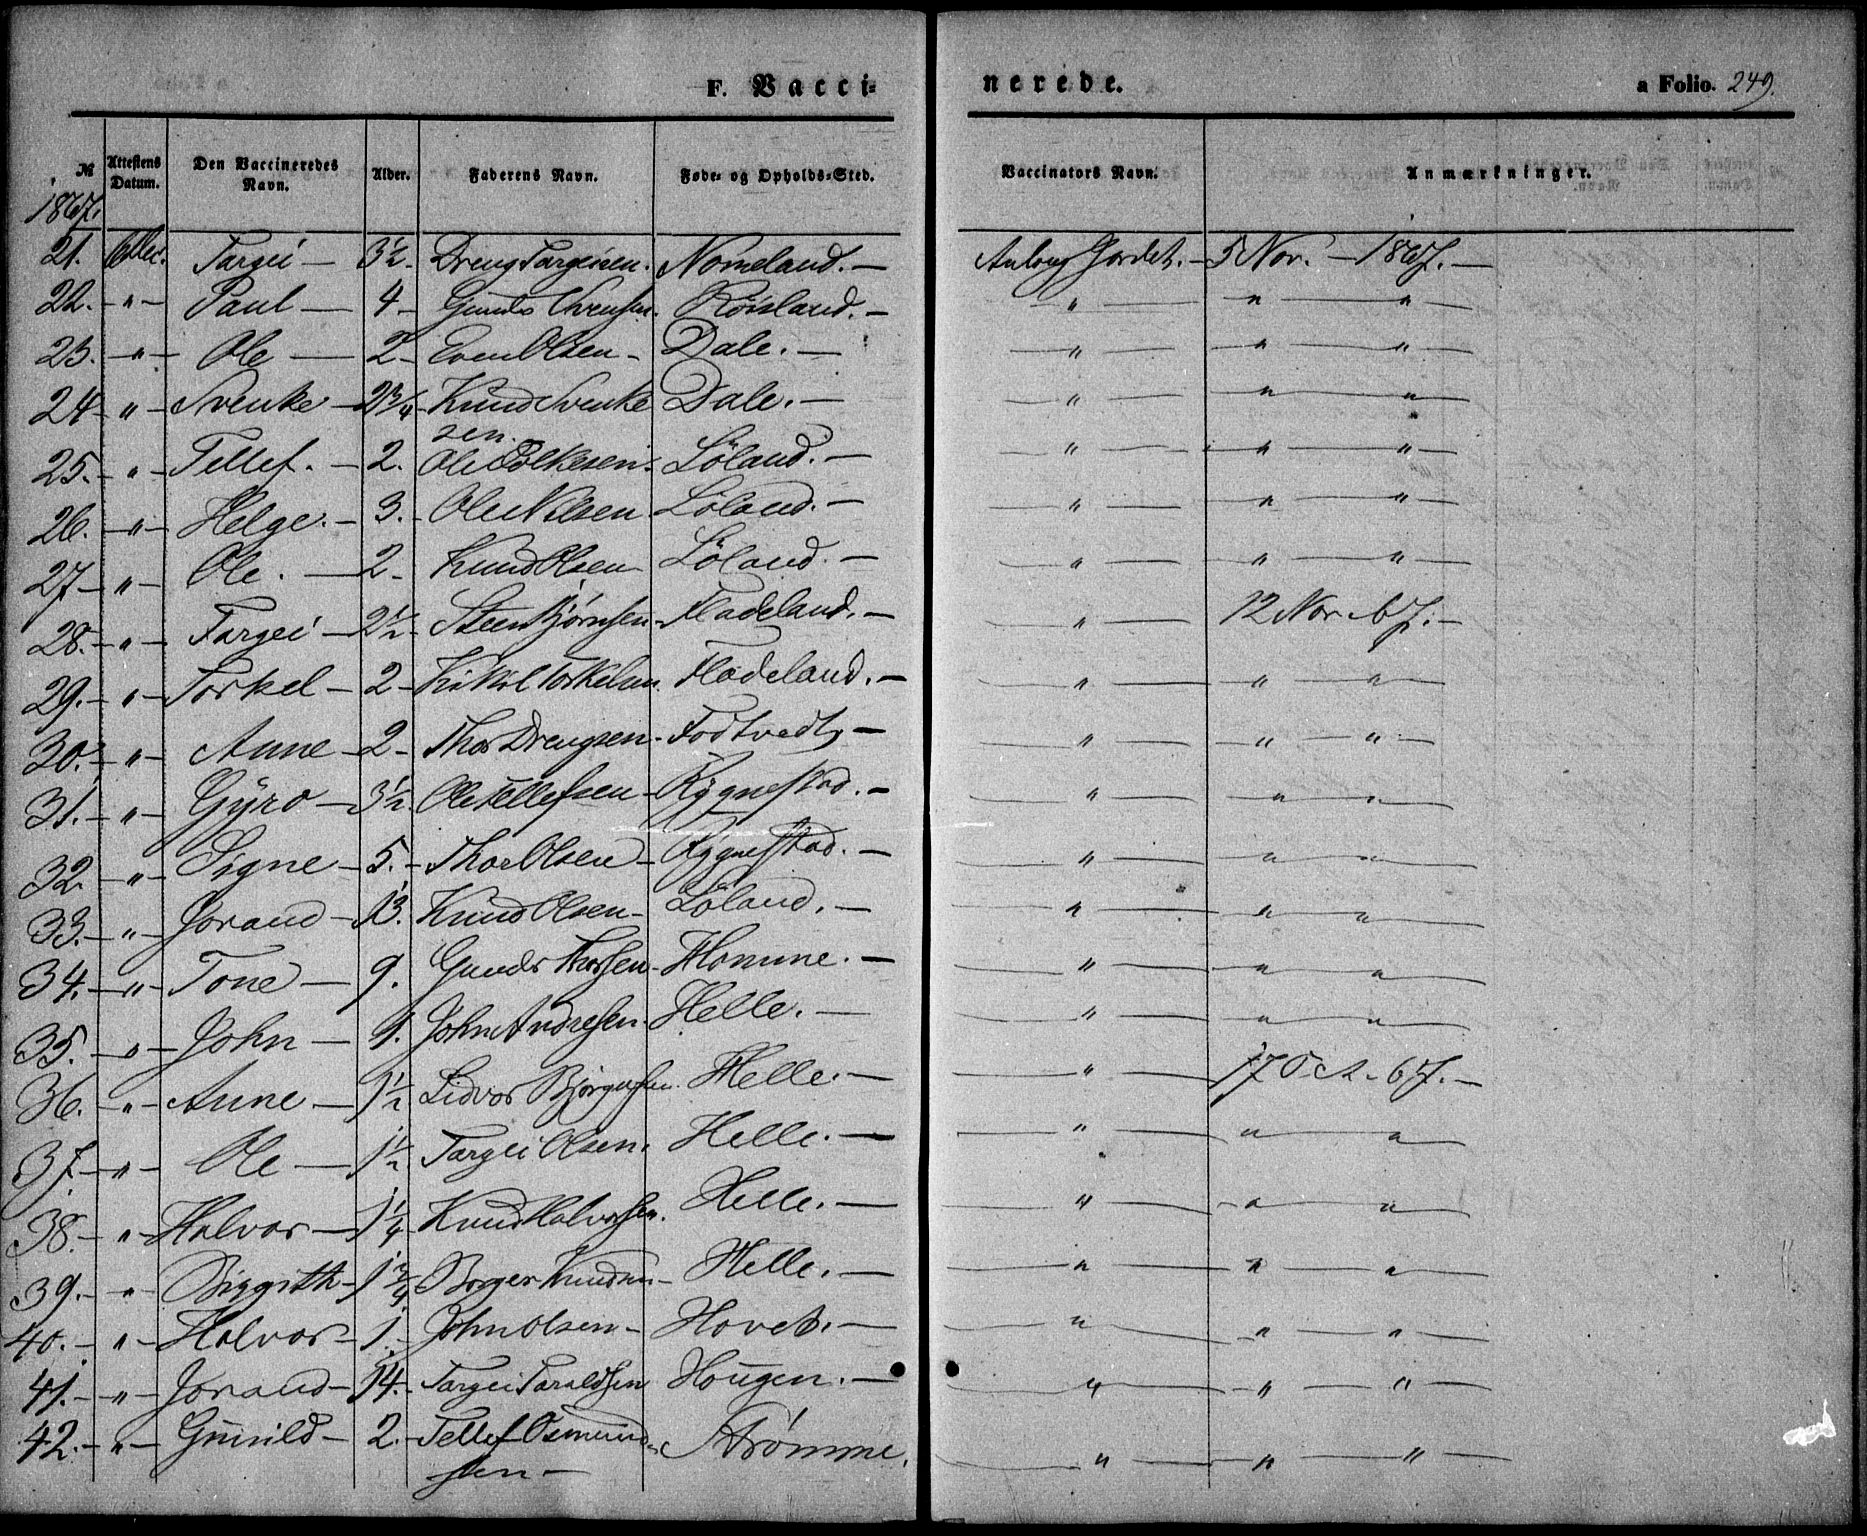 F. Vacci= nerede. a Folio. 249.
№ Attestens Datum. Den Vaccineredes Navn. Alder. Faderens Navn. Føde- og Opholds-Sted. Vaccinators Navn. Anmærkninger.
1867.
21. Targei — 3½ Dreng Targeisen. Nomeland. — Gjordet. — 5 Nov. — 1867. —
22. — " — Paul — 4 — Gunder Røisland. — " — " — "
23. — " — Ole — 2 — Even Olsen — Dale. — " — " — "
24 — " — Svenke — 2¾ — Knud Svenke Dale. — " — " — "
sen.
25. — " — Tellef. — 2. Ole Folkesen. Löland. — " — " — "
26. — " — Helge. — 3. — Ole Nilsen Löland. — " — " — "
27 — " — Ole. — 2 — Knud Olsen Löland. — " — " — "
28. — " — Targei — 2½ — Steen Bjørnsen — Fladeland. — " — 12 Nov. 67. —
29. — " — Torkel — 2 — Kittil Torkelsen. Fladeland. — " — " — "
30. — " — Anne — 2 — Thor Drengsen. — — " — " — "
31. — " — Gyro — 3½. Ole Tellefsen — Rygnestad. — " — " — "
32. — " — Signe — 5. — Thor Olsen — Rygnestad. — " — " — "
33. — " — Jorand — 13. Knud Olsen — Löland. — " — " — "
34. — " — Tone — 9. Gunder Thorsen — Homme. — " — " — "
35. — " — John — John Andresen. Helle. — " — " — "
36. — " — Anne — 1½ Lidvor Bjørgufsen. Helle. — " — 17 Oct. 67. —
37. — " — Ole — 1½ Targei Olsen. Helle. — " — " — "
38. — " — Halvor — 1¼ Knud Halvorsen. Helle. — " — " — "
39. — " — Birgith — 1¾ Borger Knudsen — Helle. — " — " — "
40. — " — Halvor — 1. John Olsen — Hovet. — " — " — "
41. — " — Jorand — 14. — Targei Taraldsen Hougen. — " — " — "
42. — " — Gunild — 2. — Tellef Osmund- Strømme. " — " — "
sen —